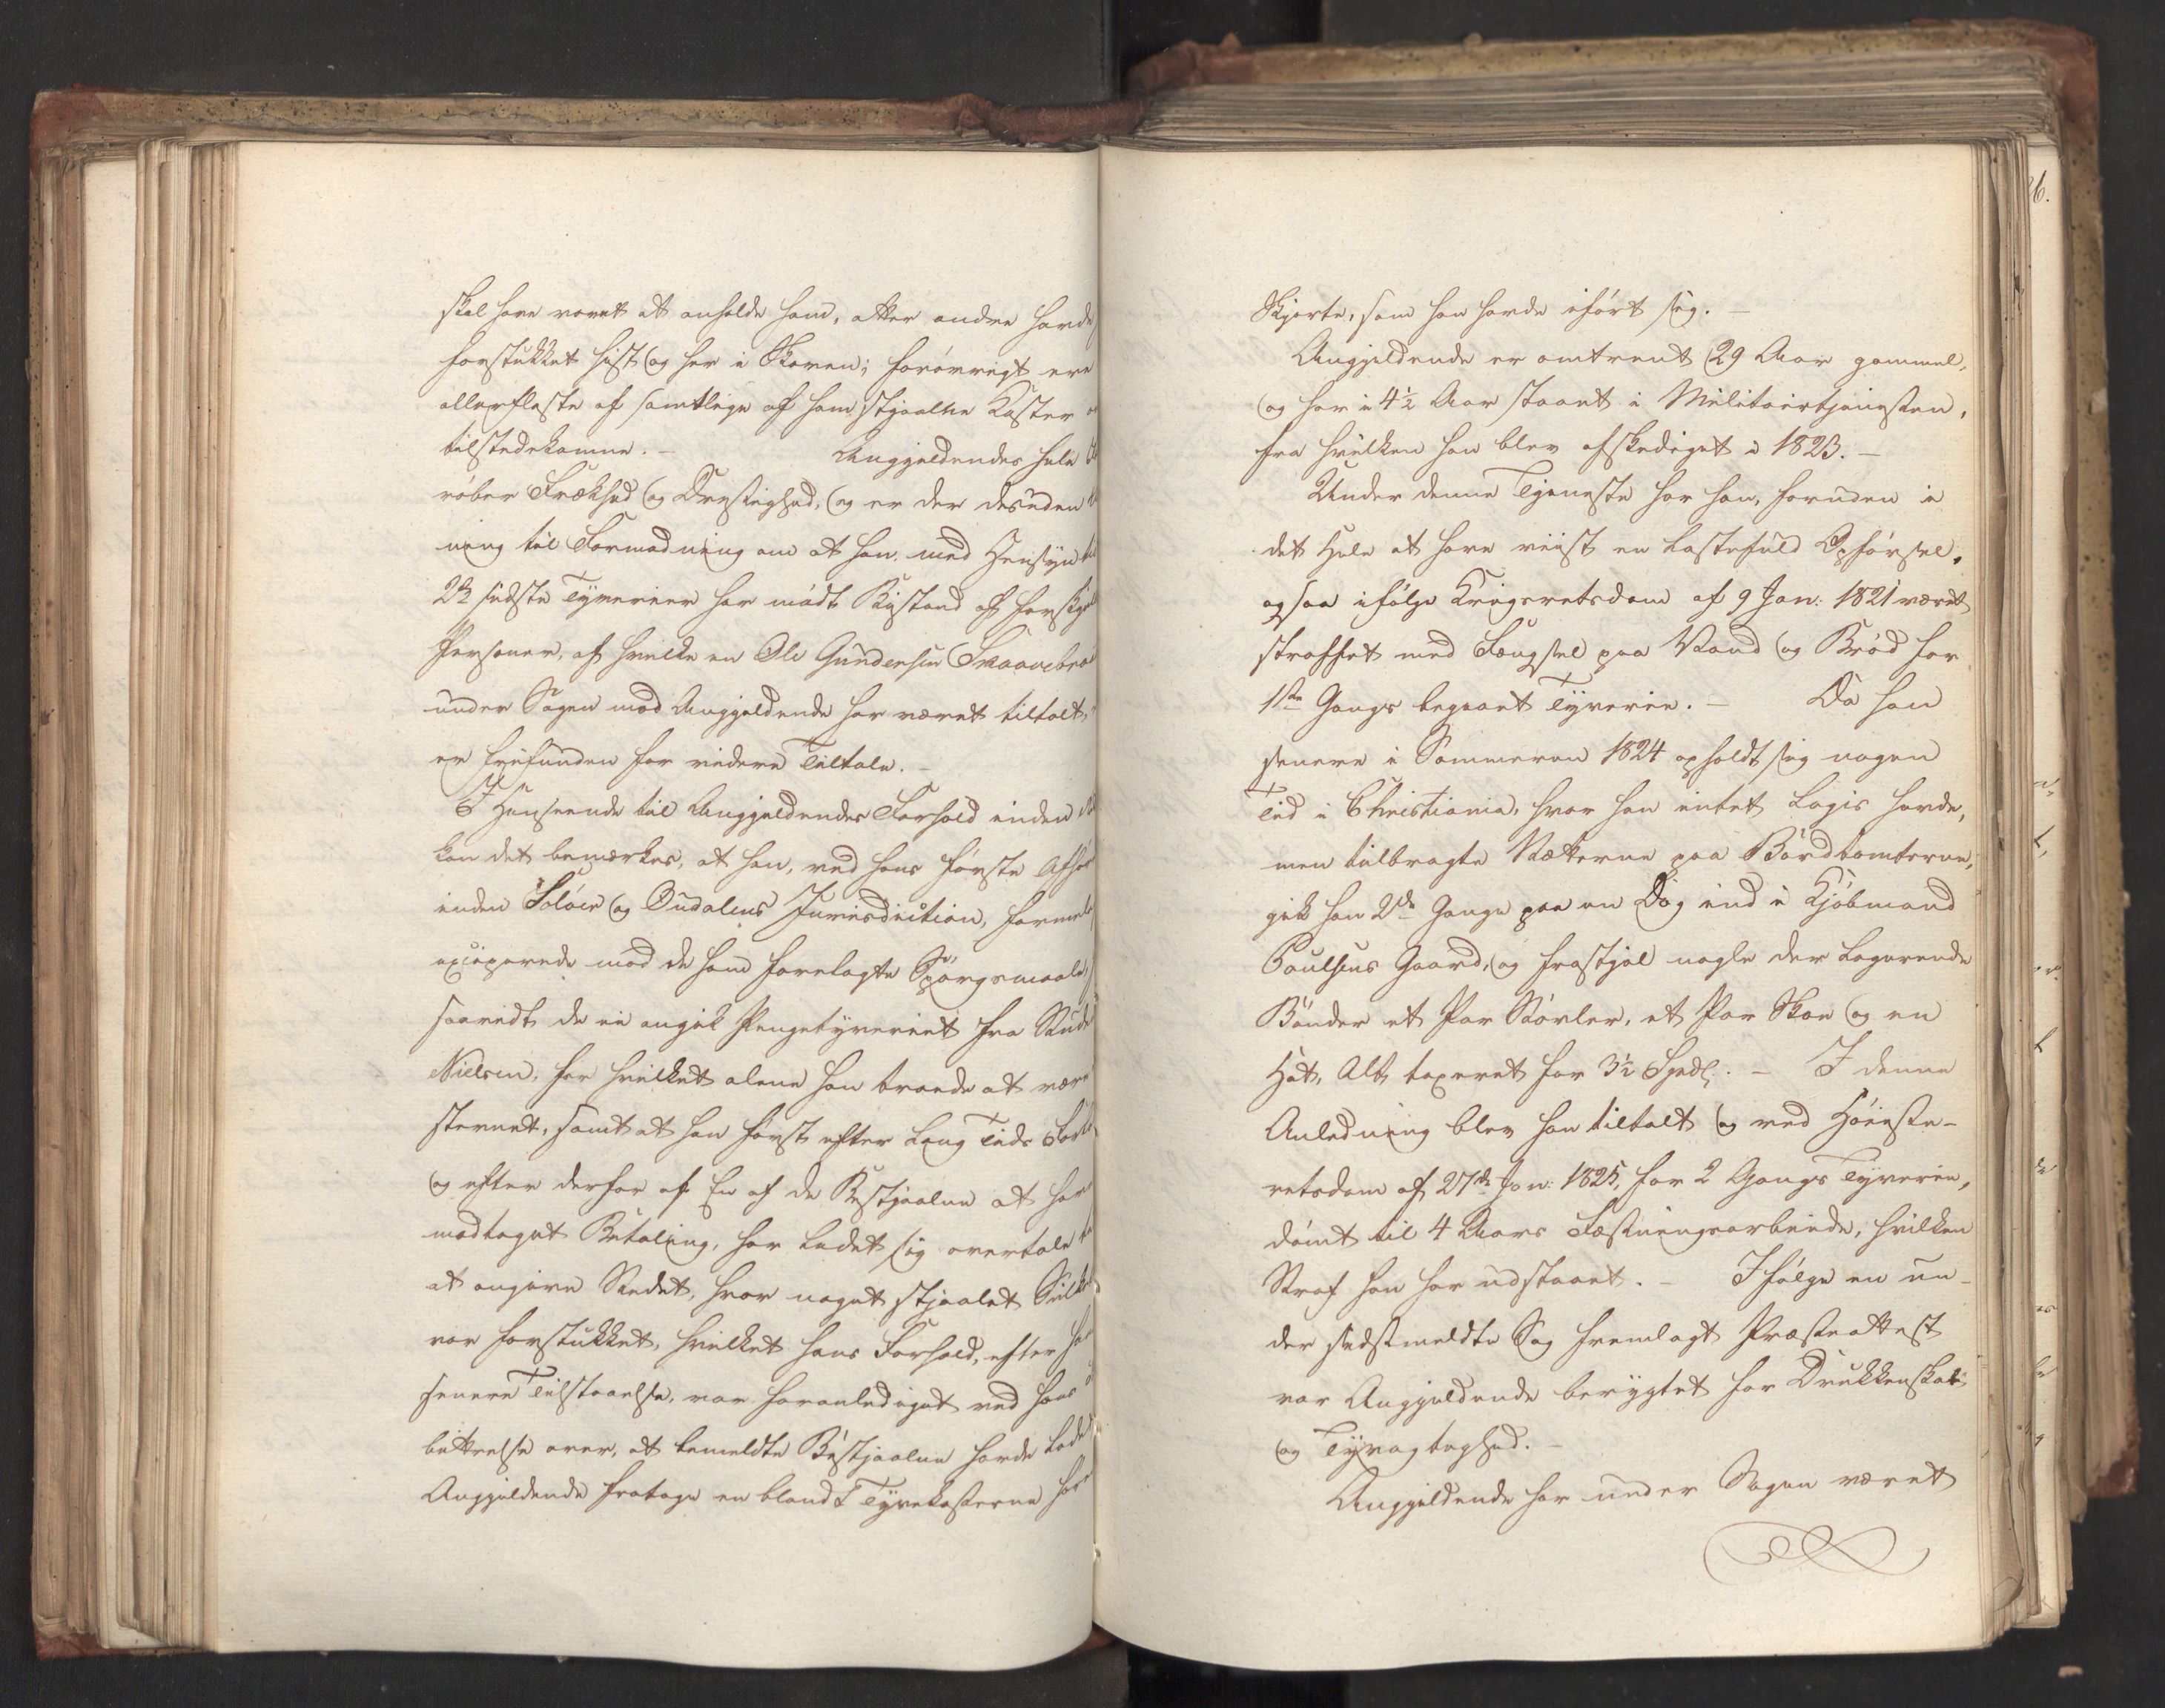 skal have været at anholde ham, atter andre havde
forstukket hist og her i Skoven; forøvrigt ere
allerfleste af samtlige af ham stjaalne Koster
tilstedekomne. – Angjeldendes hele
røber Frækhed og Dristighed, og er der desuden
ning til Formodning om at han, med Hensyn til
2de sidste Tyverier har nødt Bistand af forskjel
Personer, af hvilke en Ole Gundersen Skaavebraa
under Sagen mod Angjeldende har været tiltalt,
er frifunden for videre Tiltale. –
I Henseende til Angjeldendes Forhold inden
kan det bemærkes, at han, ved hans første Afhør
inden Soløer og Oudalens Jurisdiction, formelig
exciperede mod de ham forelagte Spørgsmaale,
saavidt de ei angik Pengetyveriet fra Knud
Nielsen, for hvilket alene han troede at være
stevnet, samt at han først efter lang Tids Forløb
og efter derfor af En af de Bestjaalne at have
modtaget Betaling, har ladet sig overtale til
at angive Stedet, hvor noget stjaalet Sølv
var forstukket, hvilket hans Forhold, efter hans
senere Tilstaaelse, var foranlediget ved hans
bittrelse over, at bemeldte Bestjaalne havde ladet
Angjeldende fratage en blandt Tyvekosterne
Skjorte, som han havde iført sig. –
Angjeldende er omtrent 29 Aar gammel,
og har i 4½ Aar staaet i Militairtjenesten,
fra hvilken han blev afskediget i 1823. –
Under denne Tjeneste har han, foruden i
det Hele at have viist en lastefuld Opførsel,
ogsaa ifølge Krigsretsdom af 9 Jan: 1821 været
straffet med Fængsel paa Vand og Brød for
1ste Gangs begaaet Tyverie. – Da han
senere i Sommeren 1824 opholdt sig nogen
Tid i Christiania, hvor han intet Logis havde,
men tilbragte Nætterne paa Bordtomterne,
gik han 2de Gange paa en Dag ind i Kjøbmand
Poulsens Gaard, og frastjal nogle der logerende
Bønder et Par Støvler, et Par Skoe og en
Hat, Alt taxeret for 3½ Spdl. – I denne
Anledning blev han tiltalt og ved Høieste-
retsdom af 27de Jan: 1825, for 2 Gangs Tyverie,
dømt til 4 Aars Fæstningsarbeide, hvilken
Straf han har udstaaet. – Ifølge en un-
der sidstmeldte Sag fremlagt Præsteattest
var Angjeldende berygtet for Drukkenskab
og Tyvagtighed. –
Angjeldende har under Sagen været